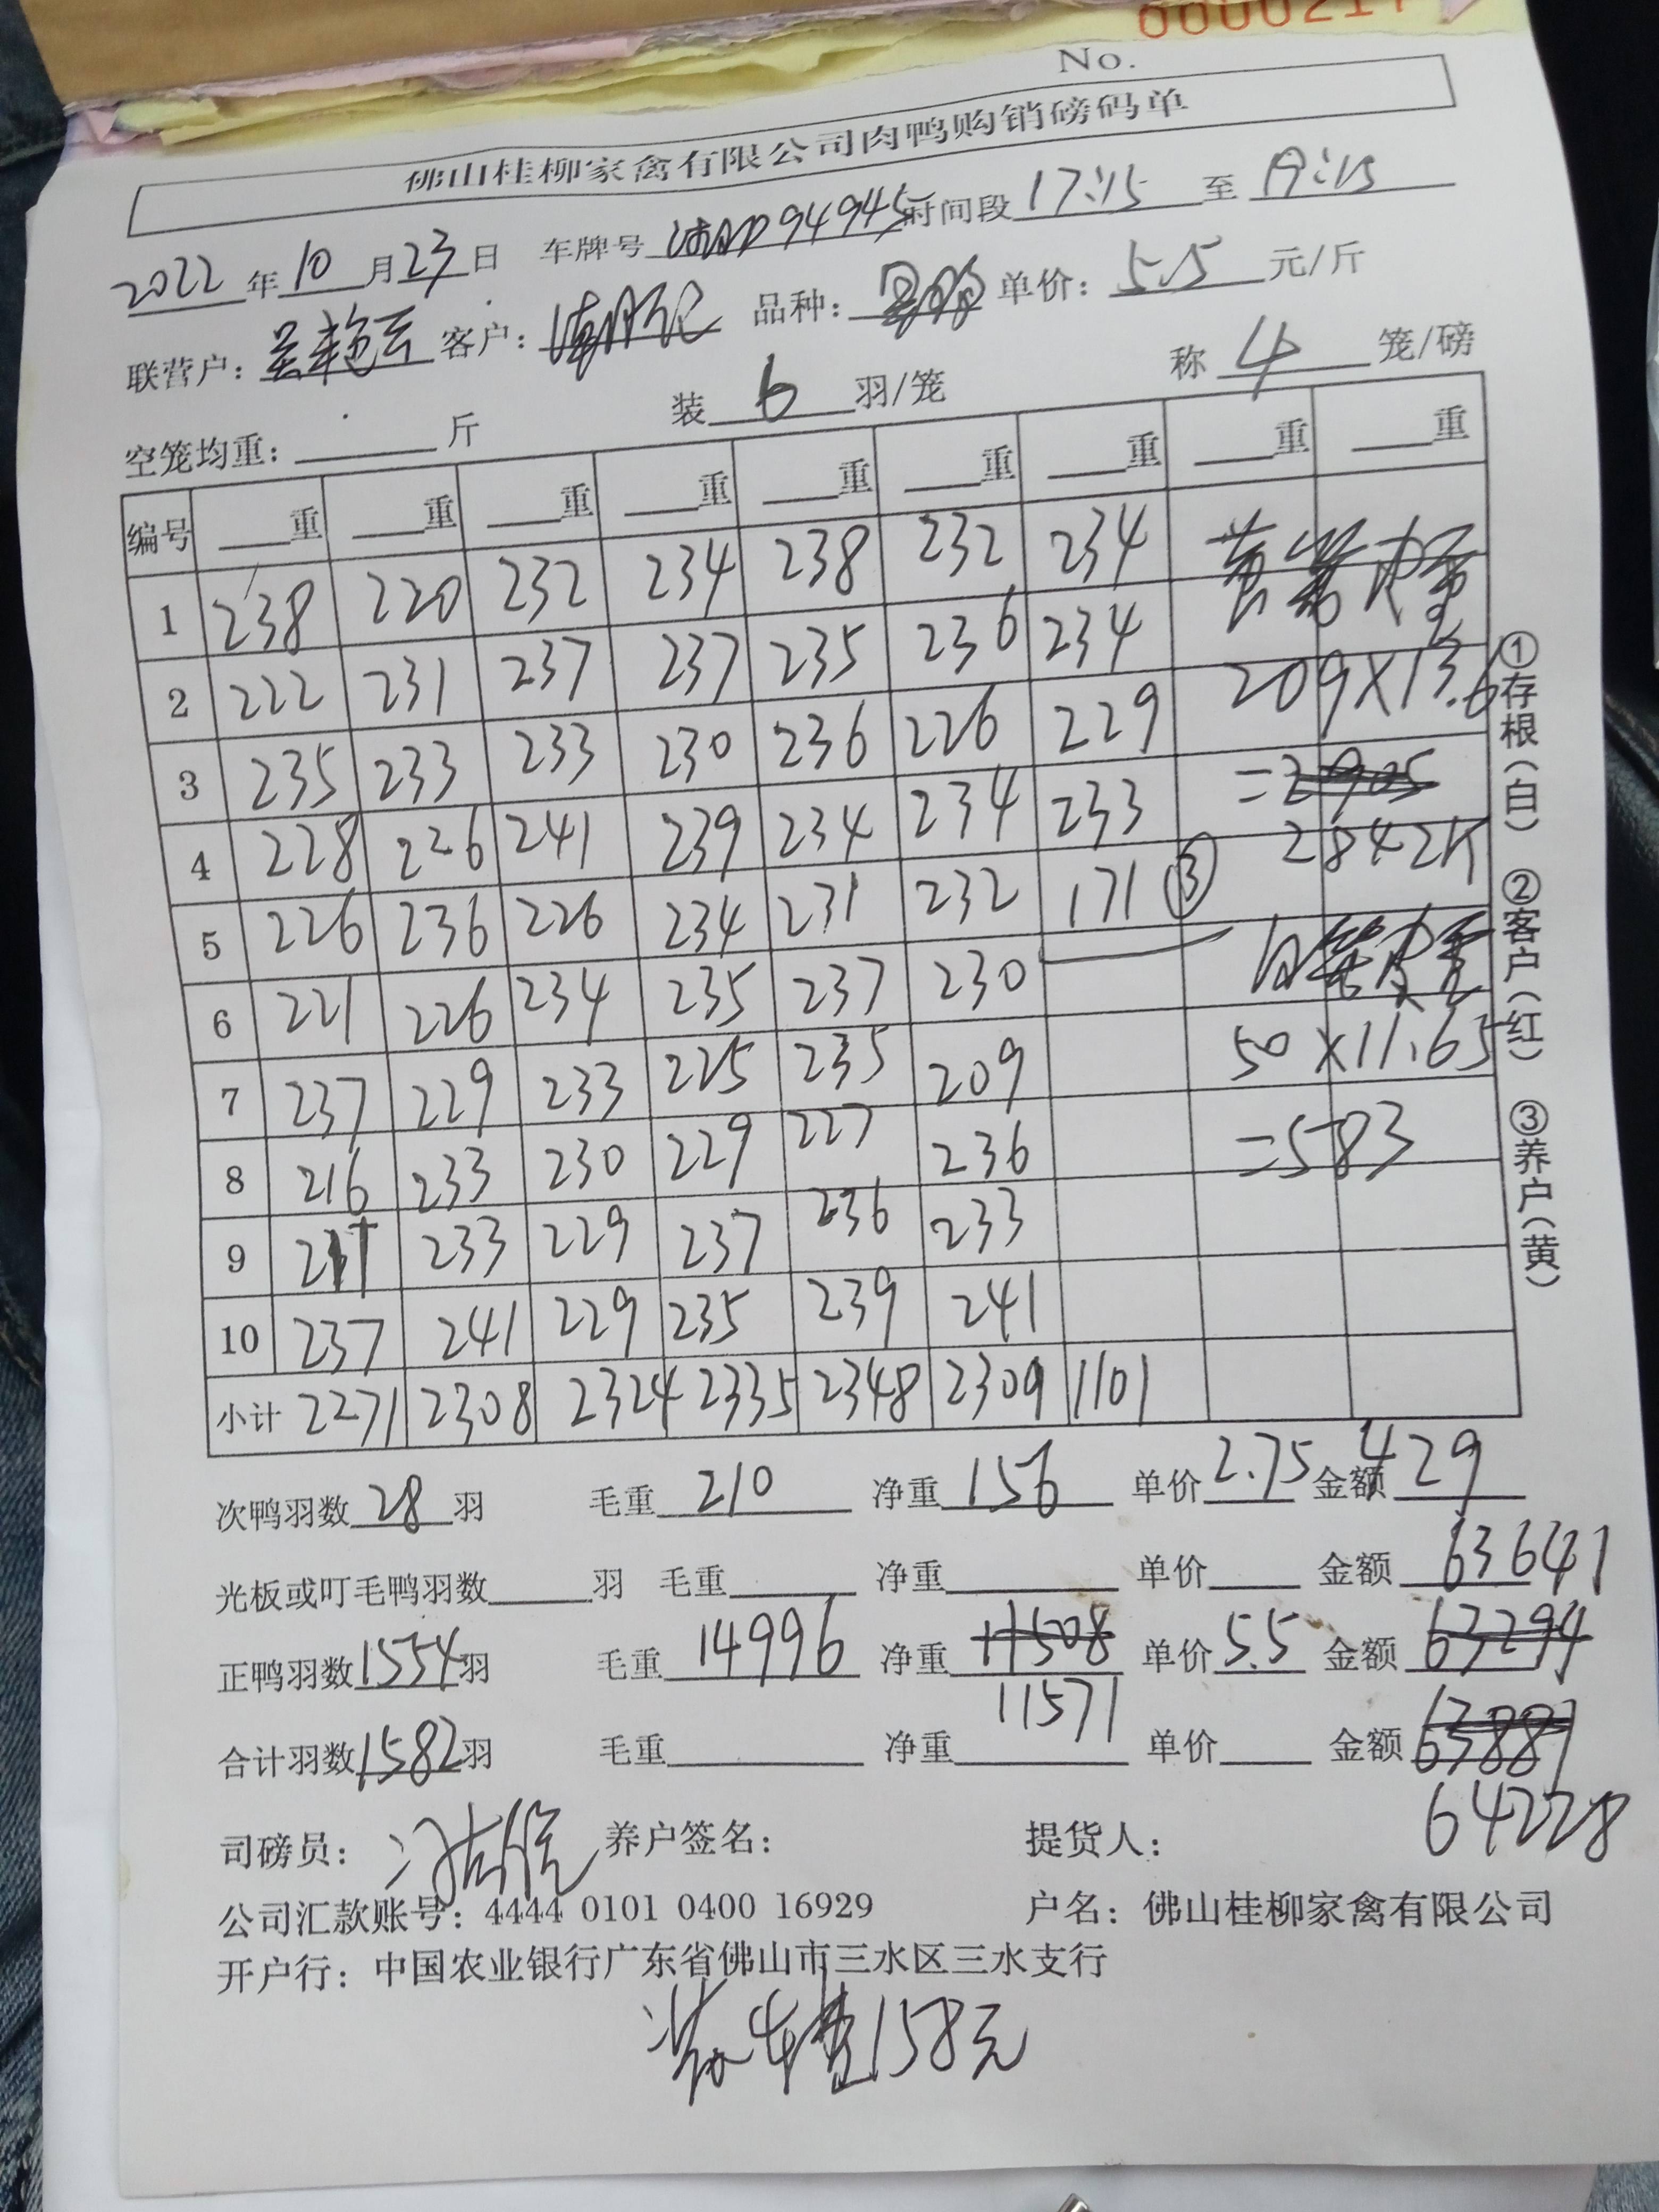 0000217
No.
佛山桂柳家禽有限公司肉鸭购销磅码单
2022年10月23日 车牌号 94945 时间段 17:15 至 19:15
联营户: 吴艳云 客户: 品种: 单价: 5.5 元/斤
空笼均重: 斤 装 6 羽/笼 称 4 笼/磅
编号 重 重 重 重 重 重 重 重 重
1 238 220 232 234 238 232 234 黄笼皮重
2 222 231 237 237 235 236 234 209×13.6
3 235 233 233 230 236 226 229 =2905
4 228 226 241 239 234 234 233 2842斤
5 226 236 226 234 231 232 171 ③
6 221 226 234 235 237 230 白笼皮重
7 237 229 233 225 235 209 50×11.65
8 216 233 230 229 227 236 =583
9 211 233 229 237 236 233
10 237 241 229 235 239 241
小计 2271 2308 2324 2335 2348 2309 1101
次鸭羽数 28 羽 毛重 210 净重 156 单价 2.75 金额 429
光板或叮毛鸭羽数 羽 毛重 净重 单价 金额 63641
正鸭羽数 1554 羽 毛重 14996 净重 11508 单价 5.5 金额 63294
11571
合计羽数 1582 羽 毛重 净重 单价 金额 63881
64228
司磅员: 养户签名: 提货人:
公司汇款账号: 4444 0101 0400 16929 户名: 佛山桂柳家禽有限公司
开户行: 中国农业银行广东省佛山市三水区三水支行
装车费158元
①存根(白) ②客户(红) ③养户(黄)